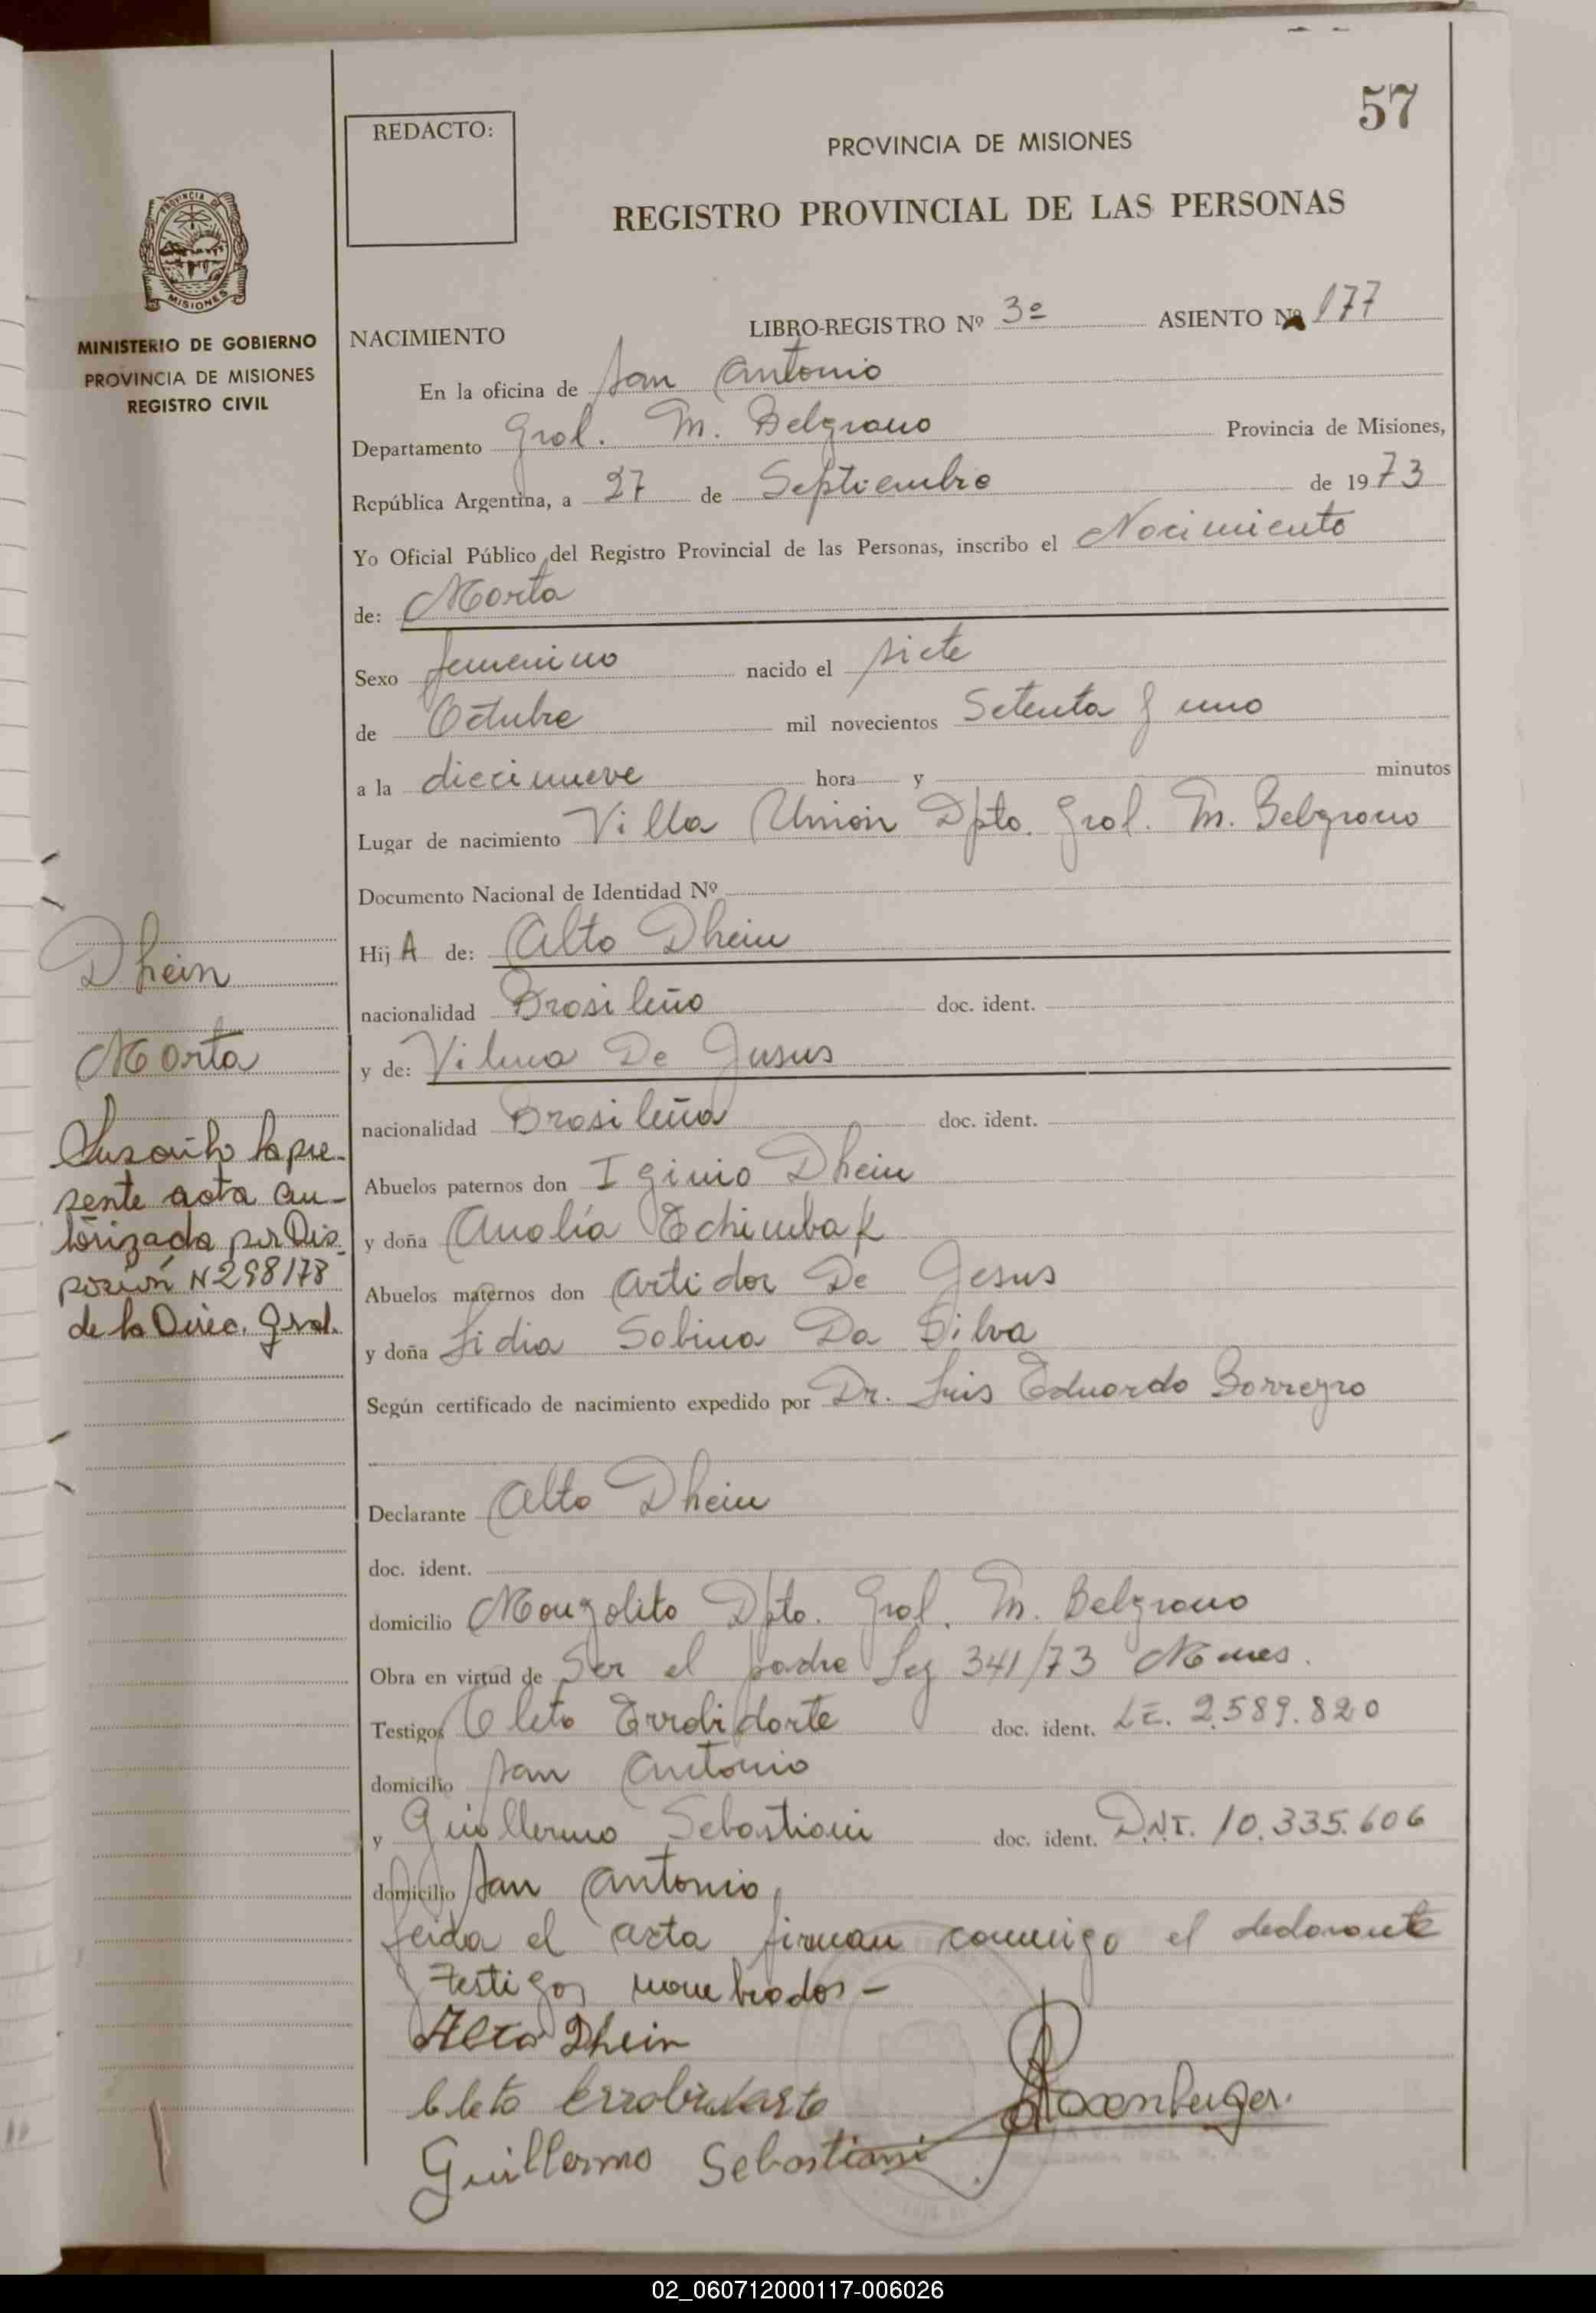 57
REDACTO:
PROVINCIA DE MISIONES
REGISTRO PROVINCIAL DE LAS PERSONAS
PROVINCIA DE
MISIONES
MINISTERIO DE GOBIERNO
PROVINCIA DE MISIONES
REGISTRO CIVIL
NACIMIENTO LIBRO-REGISTRO Nº 3º ASIENTO Nº 177
En la oficina de San Antonio
Departamento Gral. M. Belgrano Provincia de Misiones,
República Argentina, a 27 de Septiembre de 1973
Yo Oficial Público del Registro Provincial de las Personas, inscribo el Nacimiento
de: Marta
Sexo femenino nacido el siete
de Octubre mil novecientos Setenta y uno
a la diecinueve hora y minutos
Lugar de nacimiento Villa Unión Dpto. Gral. M. Belgrano
Documento Nacional de Identidad Nº
Hij A de: Alto Dhein
nacionalidad Brasileño doc. ident.
y de: Vilma De Jusus
nacionalidad Brasileña doc. ident.
Abuelos paternos don Iginio Dhein
y doña Analía Echimbak
Abuelos maternos don Artidor De Jesus
y doña Lidia Sabina Da Silva
Según certificado de nacimiento expedido por Dr. Luis Eduardo Borregro
Declarante Alto Dhein
doc. ident.
domicilio Mongolito Dpto. Gral. M. Belgrano
Obra en virtud de Ser el padre Ley 341/73
Testigos Cleto doc. ident. L.E. 2.589.820
domicilio San Antonio
y Guillermo Sebastiani doc. ident. D.N.I. 10.335.606
domicilio San Antonio
Leida el acta firman conmigo el declarante
y testigos nombrados-
Alto Dhein
Cleto
Guillermo Sebastiani
Dhein
Marta
Suscribo la pre-
sente acta au-
torizada por Dis-
posición N 298/78
de la Direc. Gral.
02_060712000117-006026